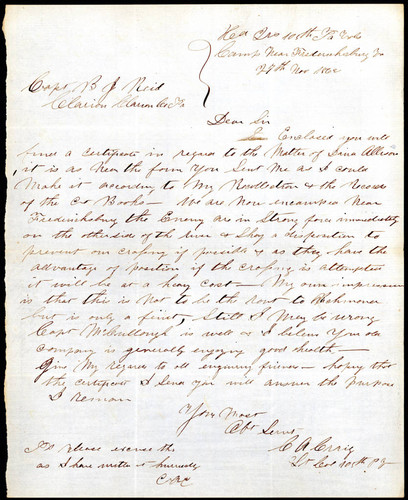 Hd Qrs 105th Pa Vols
Camp Near Fredericksburg Va
27th Nov 1862
Capt B J Reid
Clarion Clarion Co Pa
Dear Sir
Enclosed you will
find a certificate in regard to the Matter of Allison
it is as Near the form You Sent Me as I could
Make it according to My Recollection & the Records
of the Co Books — We are Now encamped Near
Fredericksburg the Enemy are in Strong force immediately
on the other side of the river & Show a disposition to
prevent our crossing if possible & as they have the
advantage of position if the crossing is attempted
it will be at a heavy cost — My own impression
is that this is Not to be the rout to Richmond
but is only a feint, Still I May be wrong
Capt McCullough is well & I believe Your old
company is generally enjoying good health —
Give My regards to all enquiring friends — hoping that
the certificate I Send You will answer the purpose
I remain
Your Most
Obt Servt
C A Craig
Lt Col 105th P V
P.S. please excuse this
as I have written it hurriedly
C.A.C